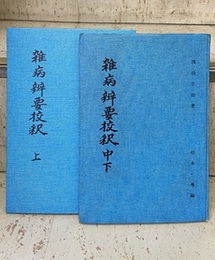 雜病辨要挍釈 上
雜病辨要挍釈 中下